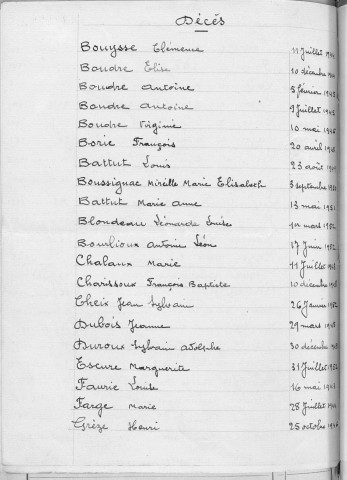 Décès
Bouysse Clémence 11 Juillet
Boudre Elise 10 décembre
Boudre Antoine 5 février
Boudre Antoine 9 Juillet
Boudre Virginie 10 mai
Borie François 20 avril
Battut Louis 23 août
Boussignac Mireille Marie Elisabeth 3 septembre
Battut Marie Anne 13 mai
Blondeau Léonarde Louise mars
Bourlioux Antoine Léon 17 Juin
Chalaux Marie 11 Juillet
Charissoux François Baptiste 10 décembre
Cheix Jean Sylvain 26 Janvier
Dubois Jeanne 29 mars
Duroux Sylvain Adolphe 30 décembre
Escure Marguerite 31 Juillet
Faurie Louise 16 mai
Farge Marie 28 Juillet
Grèze Henri 25 octobre